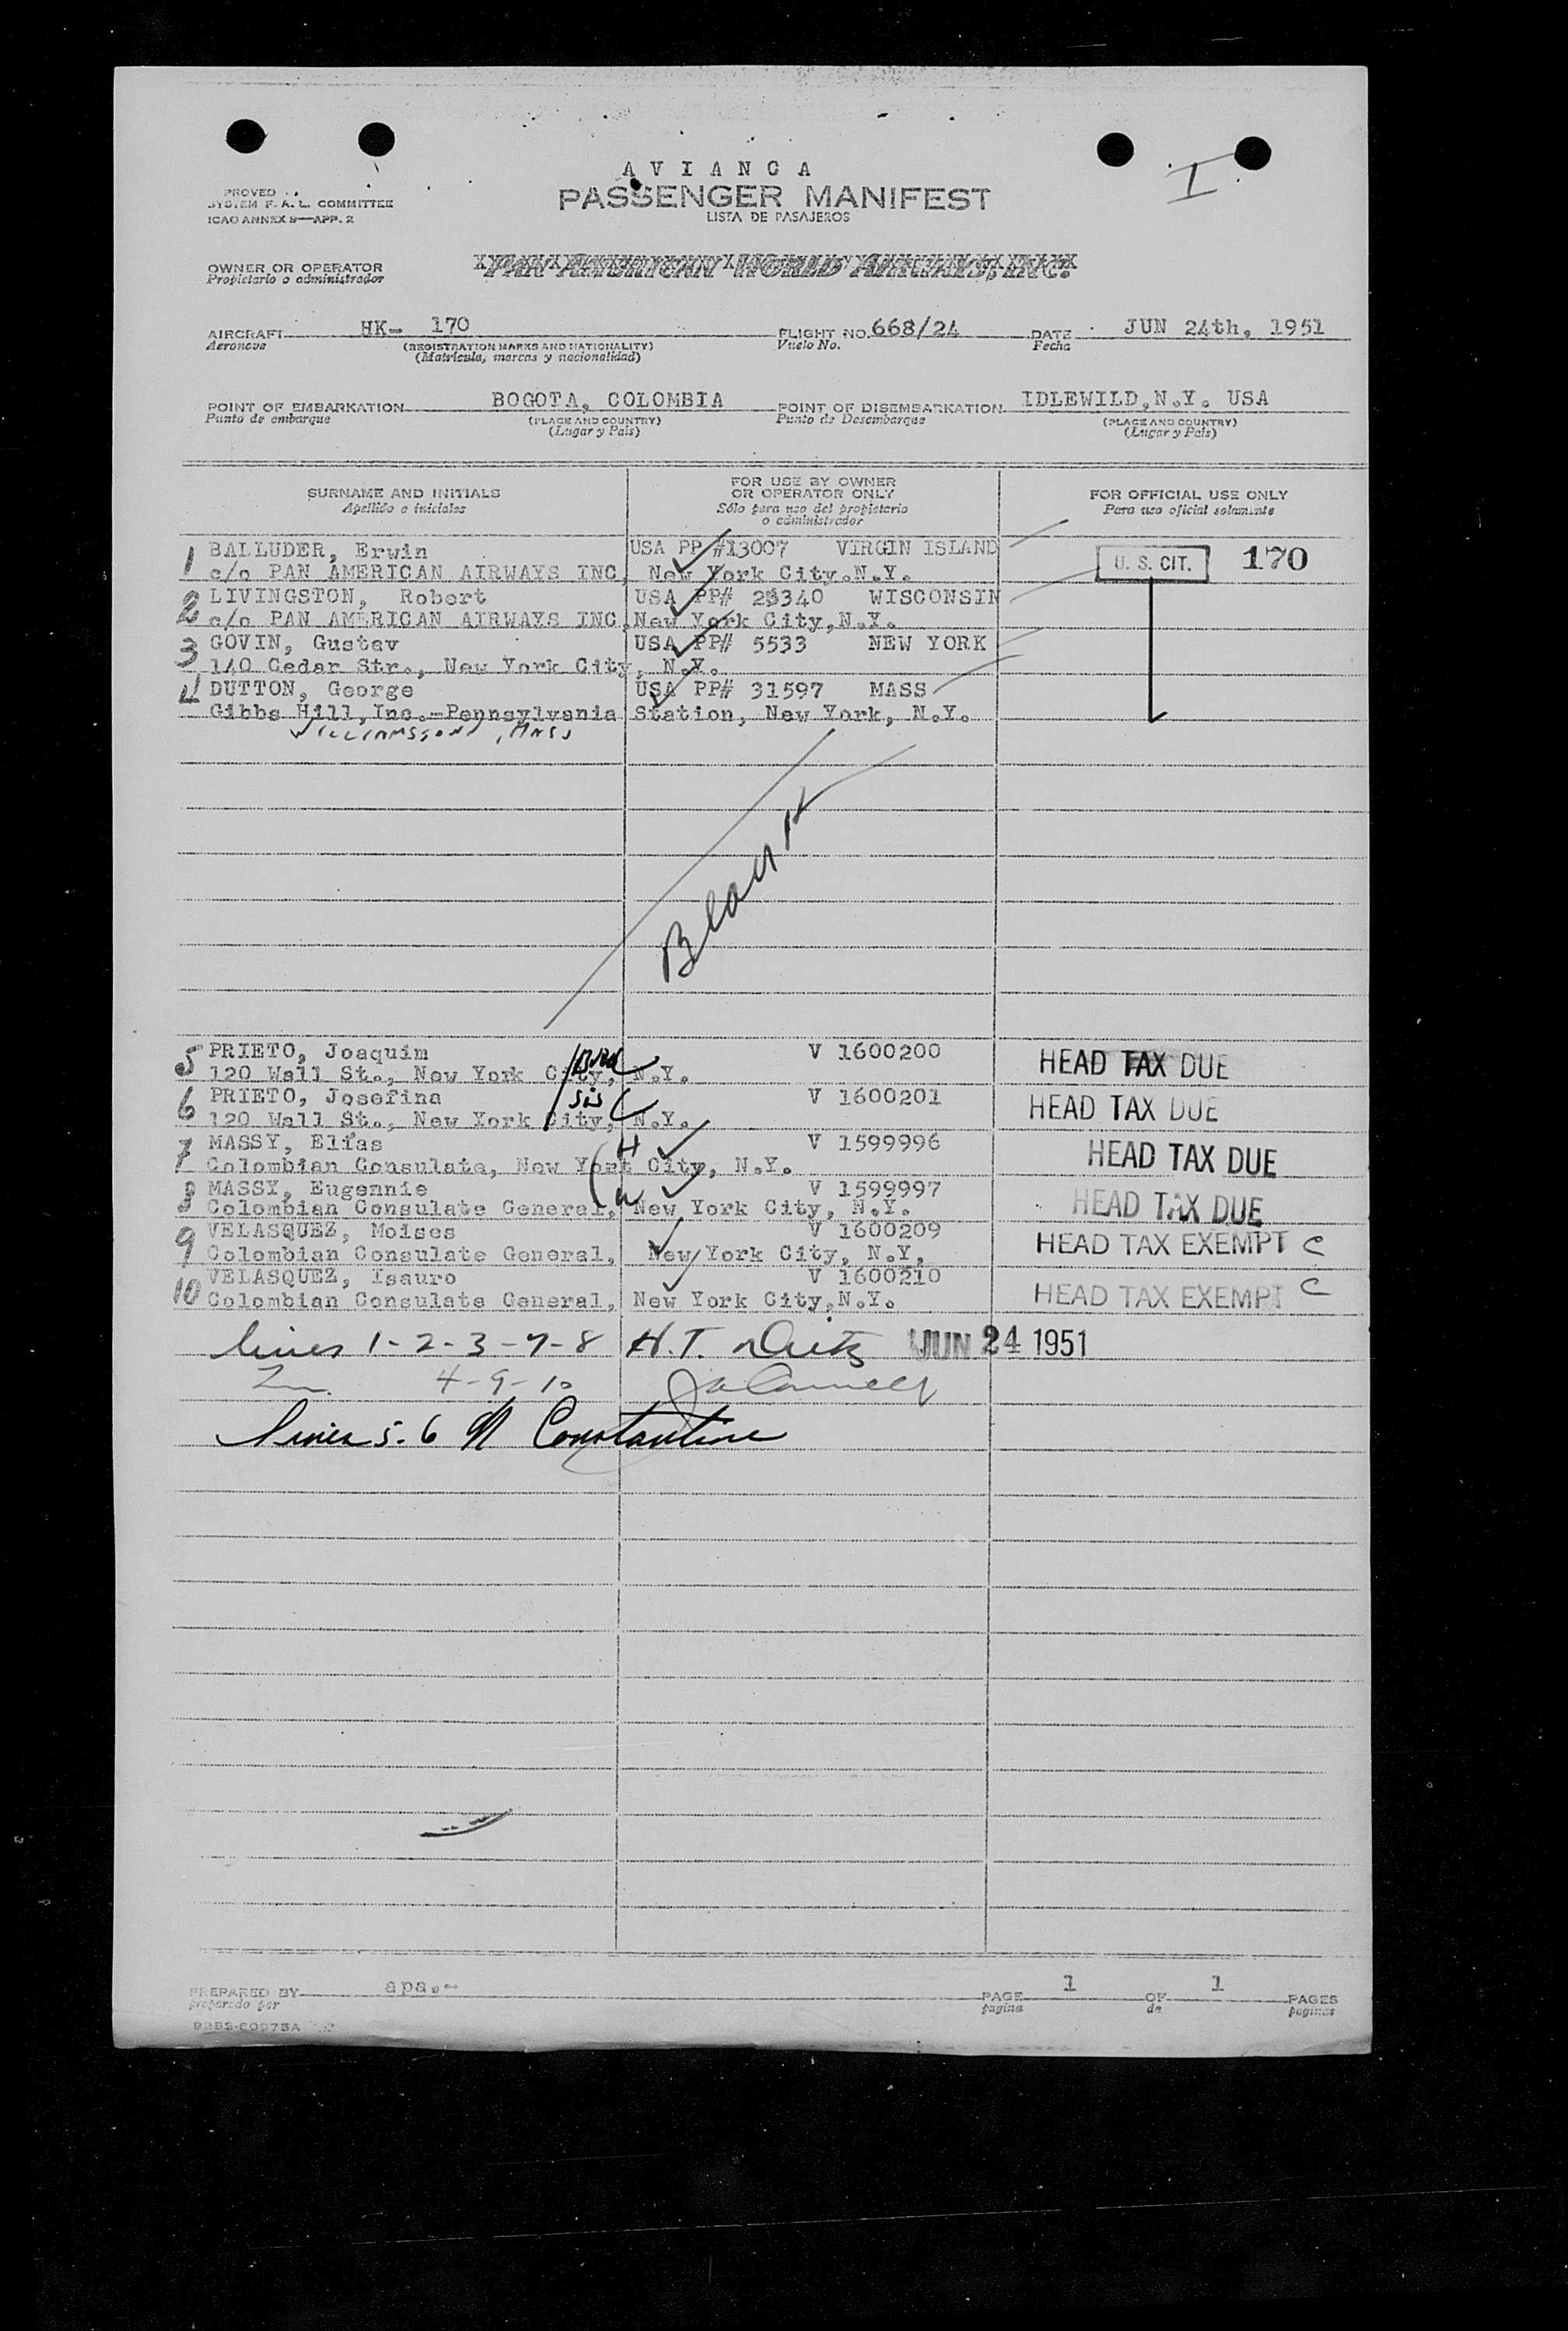 I
AVIANCA
PROVED
SYSTEM F. A. L. COMMITTEE
ICAO ANNEX 9—APP. 2
PASSENGER MANIFEST
LISTA DE PASAJEROS
OWNER OR OPERATOR
Propietario o administrador
PAN AMERICAN WORLD AIRWAYS, INC.
AIRCRAFT HK- 170 FLIGHT NO. 668/24 DATE JUN 24th, 1951
Aeronave (REGISTRATION MARKS AND NATIONALITY) Vuelo No. Fecha
(Matrícula, marcas y nacionalidad)
POINT OF EMBARKATION BOGOTA, COLOMBIA POINT OF DISEMBARKATION IDLEWILD,N.Y. USA
Punto de embarque (PLACE AND COUNTRY) Punto de Desembarque (PLACE AND COUNTRY)
(Lugar y País) (Lugar y País)
SURNAME AND INITIALS
Apellido e iniciales
FOR USE BY OWNER
OR OPERATOR ONLY
Sólo para uso del propietario
o administrador
FOR OFFICIAL USE ONLY
Para uso oficial solamente
1 BALLUDER, Erwin USA PP #13007 VIRGIN ISLAND
c/o PAN AMERICAN AIRWAYS INC, New York City.N.Y. U. S. CIT. 170
2 LIVINGSTON, Robert USA PP# WISCONSIN
c/o PAN AMERICAN AIRWAYS INC,New York City,N.Y.
3 GOVIN, Gustav USA PP# 5533 NEW YORK
140 Cedar Str., New York City, N.Y.
4 DUTTON, George USA PP# 31597 MASS
Gibbs Hill,Inc.-Pennsylvania Station, New York, N.Y.
, MASS
Blank
5 PRIETO, Joaquim V 1600200 HEAD TAX DUE
120 Wall St., New York City, N.Y.
6 PRIETO, Josefina sis V 1600201 HEAD TAX DUE
120 Wall St., New York City, N.Y.
7 MASSY, Elías H V 1599996 HEAD TAX DUE
Colombian Consulate, New York City, N.Y.
8 MASSY, Eugennie W V 1599997 HEAD TAX DUE
Colombian Consulate General, New York City, N.Y.
9 VELASQUEZ, Moises V 1600209 HEAD TAX EXEMPT C
Colombian Consulate General, New York City, N.Y,
10 VELASQUEZ, Isauro V 1600210 HEAD TAX EXEMPT C
Colombian Consulate General, New York City,N.Y.
lines 1-2-3-7-8 H.T. JUN 24 1951
4-9-10
lines 5-6 Constantine
PREPARED BY apa.- PAGE 1 OF 1 PAGES
preparado por pagina de paginas